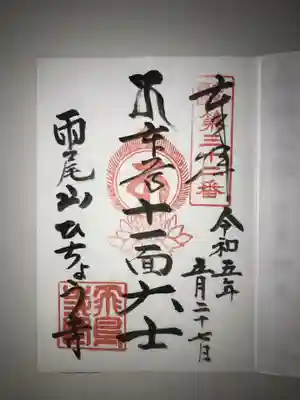 奉拝
令和五年
五月二十七日
本尊十一面大士
雨尾山ひちょう寺